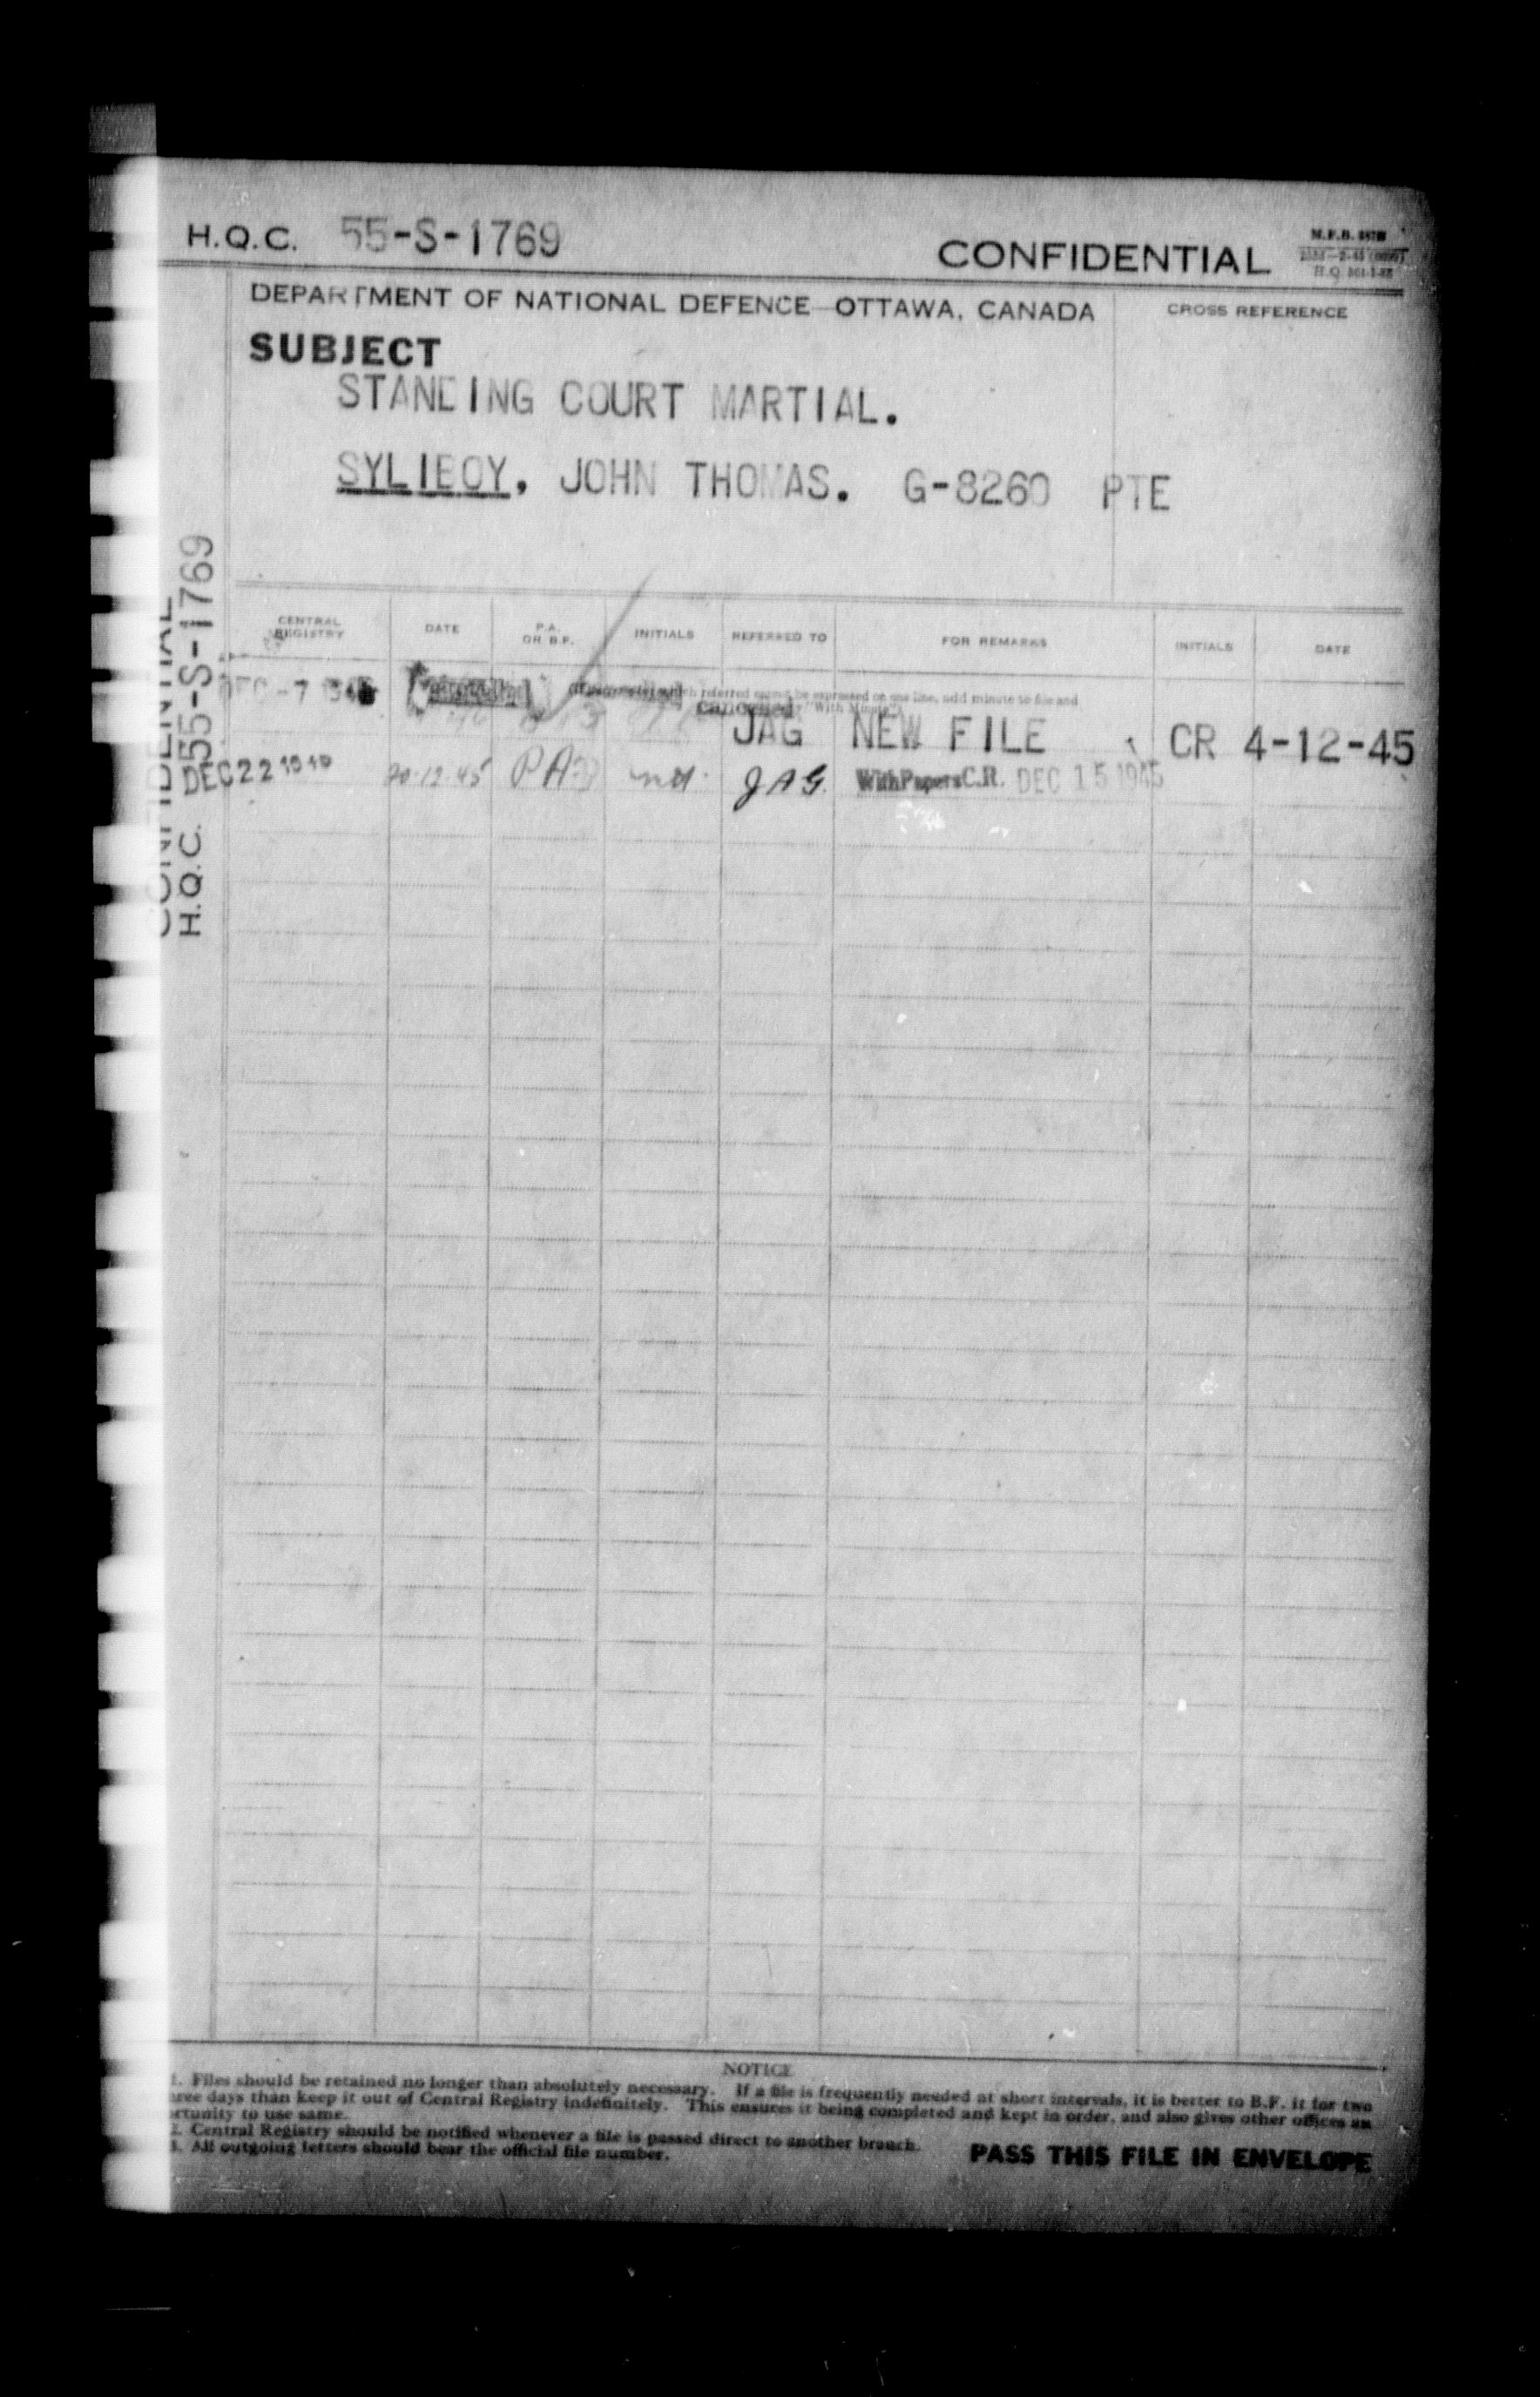 H.Q.C. 55-S-1769
CONFIDENTIAL
M.F.B.
DEPARTMENT OF NATIONAL DEFENCE OTTAWA, CANADA
CROSS REFERENCE
SUBJECT
STANDING COURT MARTIAL.
SYLIBOY, JOHN THOMAS. G-8260 PTE
CONFIDENTIAL
H.Q.C. 55-S-1769
CENTRAL REGISTRY DATE P.A. OR B.F. INITIALS REFERRED TO FOR REMARKS INITIALS DATE
DEC -7 1945
referred cannot be expressed on one line, add minute to file and
Cancelled "With Minute"
JAG NEW FILE CR 4-12-45
DEC 22 20-12-45 PA JAG. With Papers C.R. DEC 15 1945
NOTICE
1. Files should be retained no longer than absolutely necessary. If a file is frequently needed at short intervals, it is better to B.F. it for two
three days than keep it out of Central Registry indefinitely. This ensures it being completed and kept in order, and also gives other offices an
ortunity to use same.
2. Central Registry should be notified whenever a file is passed direct to another branch.
3. All outgoing letters should bear the official file number.
PASS THIS FILE IN ENVELOPE